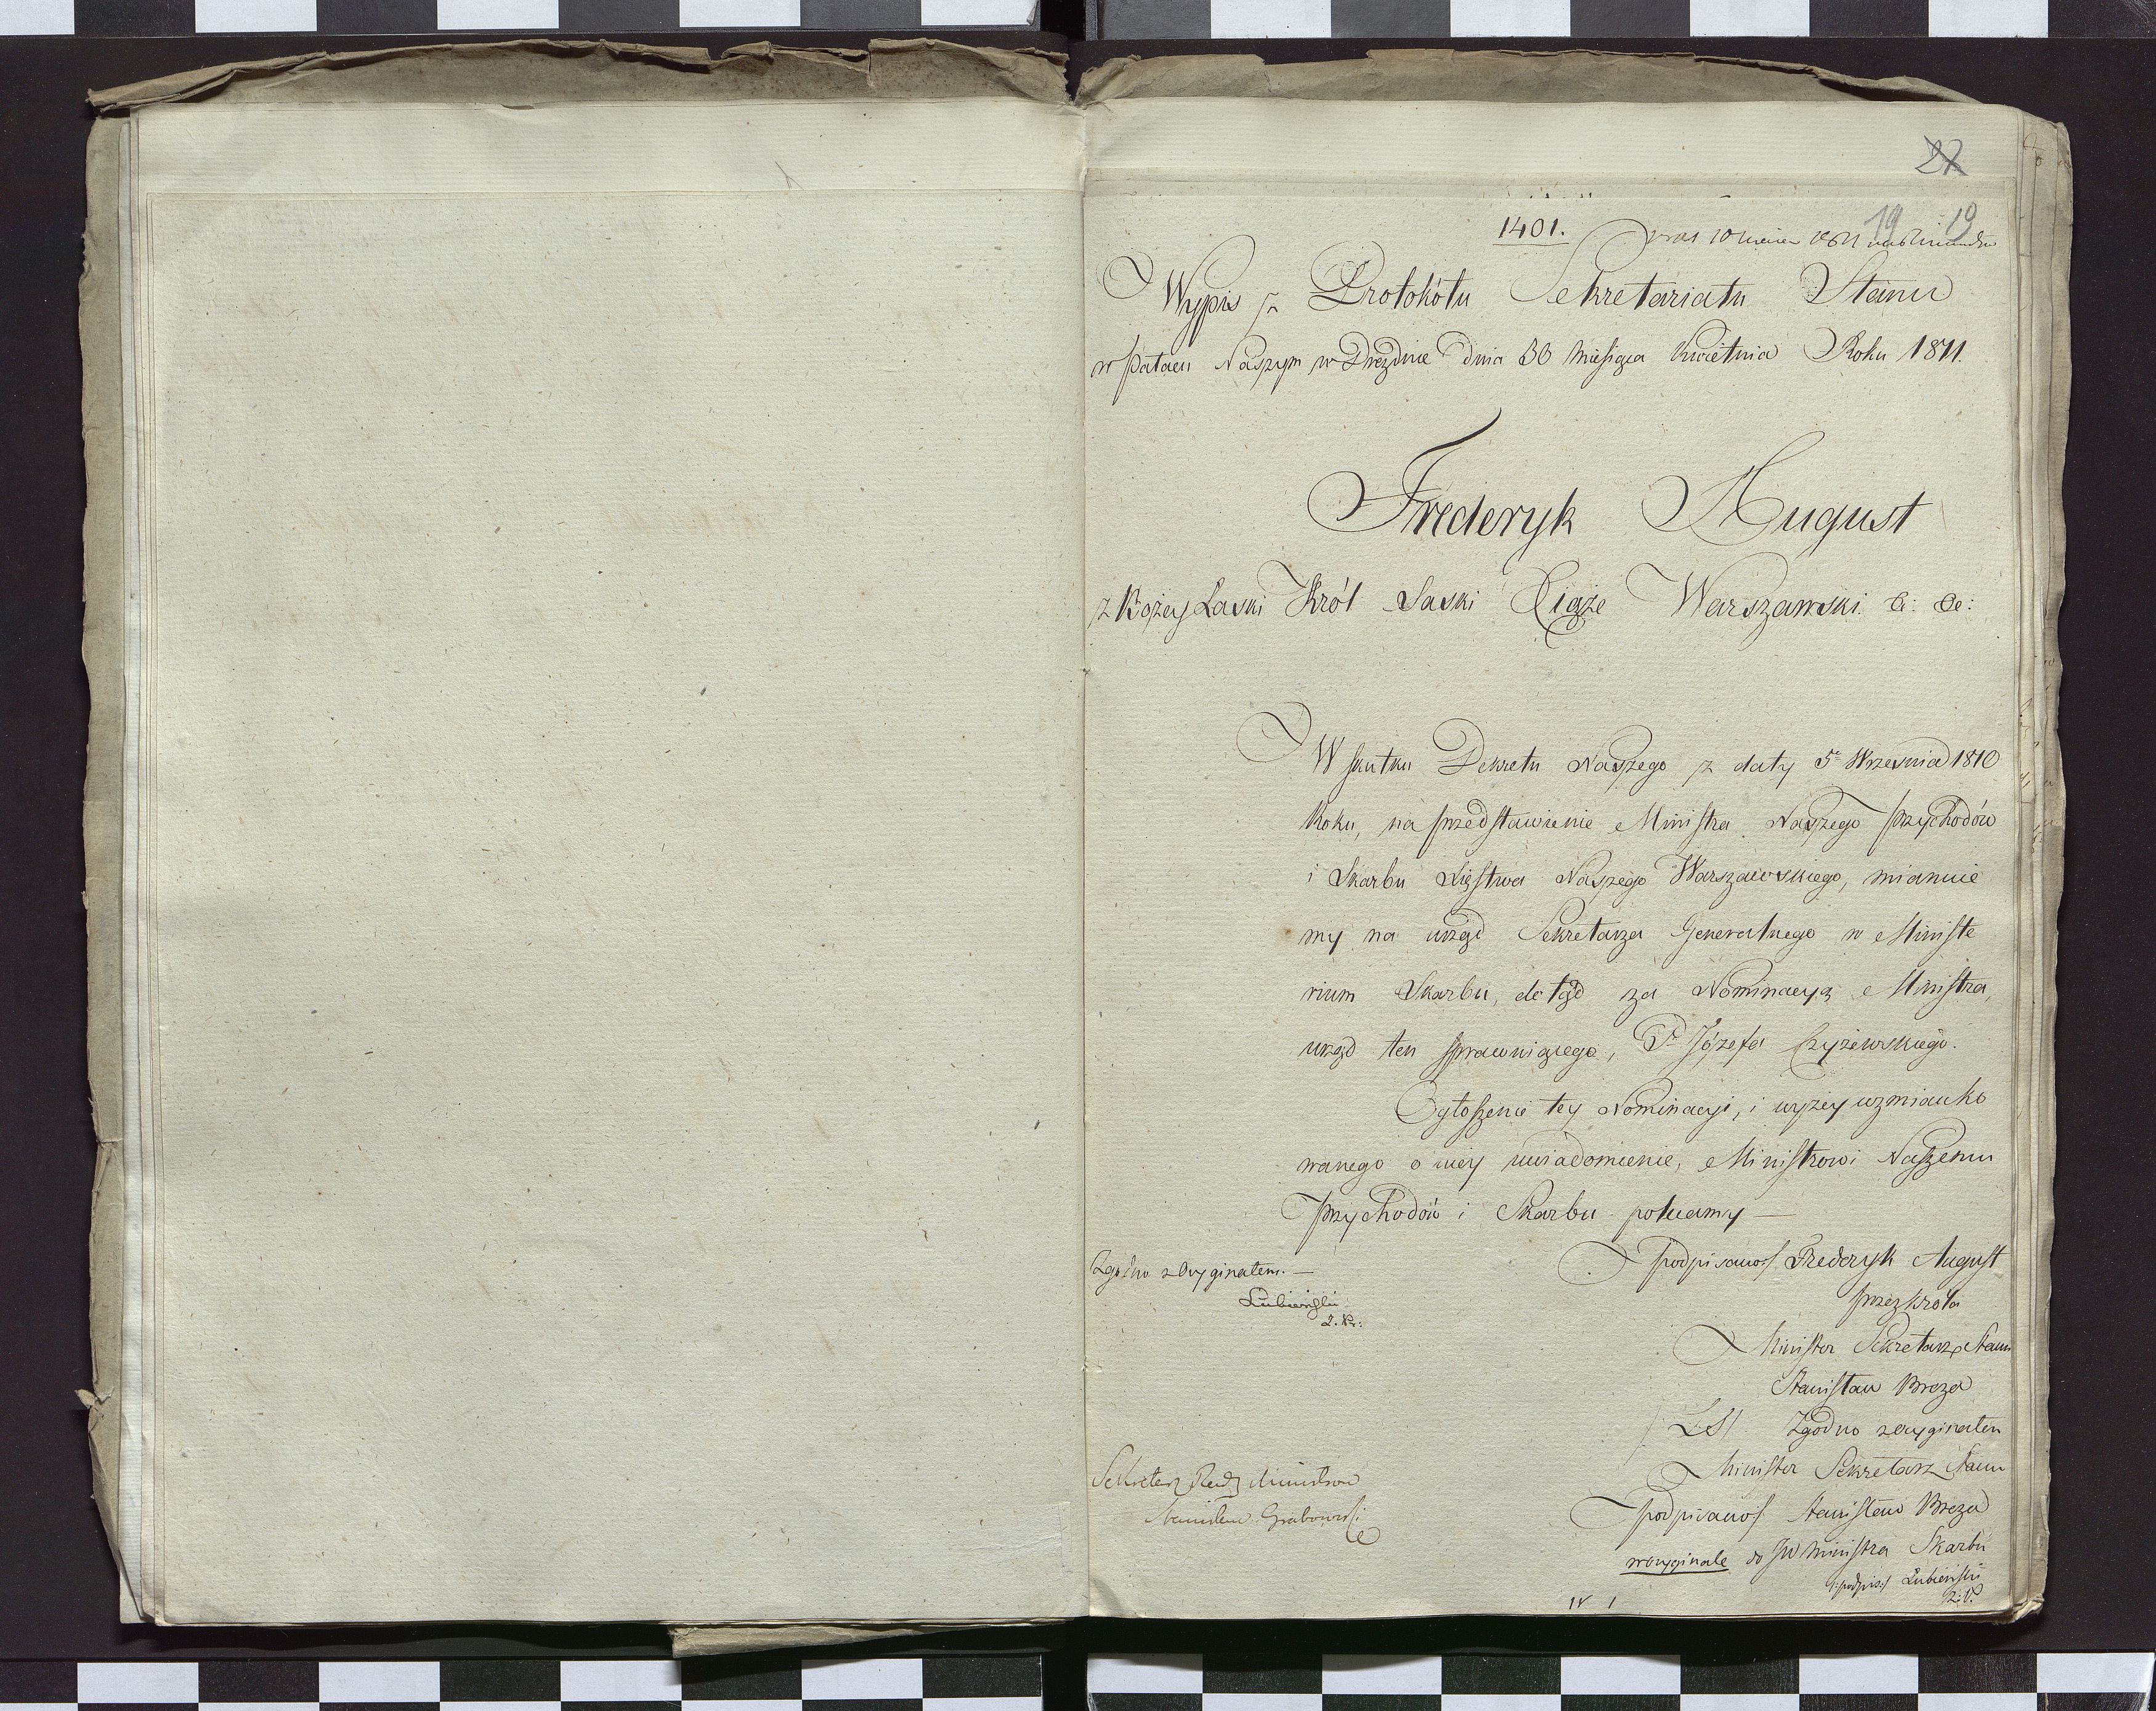 27
19 19
1401.
Wypis z Protokółu Sekretariatu Stanu
w Pałacu Naszym w Dreznie dnia 30 Miesiąca Kwietnia Roku 1811.
Frederyk August
z Bożey Łaski Król Saski Xiąże Warszawski &: &:
W skutku Dekretu Naszego z daty 5º Września 1810
Roku, na przedstawienie Ministra Naszego przychodów
i Skarbu Xięstwa Naszego Warszawskiego, mianuie
my na urząd Sekretarza Generalnego w Ministe
rium Skarbu, dotąd za Nominacyą Ministra,
urząd ten sprawuiącego, P. Józefa Czyżewskiego.
Ogłoszenie tey Nominacyi, i wyżey wzmianko
wanego o niey uwiadomienie, Ministrowi Naszemu
przychodów i Skarbu polecamy —
podpisano/ Frederyk August
przez Króla
Minister Sekretarz Stanu
Stanisław Breza
/LS/ Zgodno z oryginałem
Minister Sekretarz Stanu
podpisano/ Stanisław Breza
w oryginale do JW Ministra Skarbu
/:podpis:/ Łubieński
Zgodno z Oryginałem. —
Łubieński
Sekretarz Rady Ministrów
Stanisław Grabowski